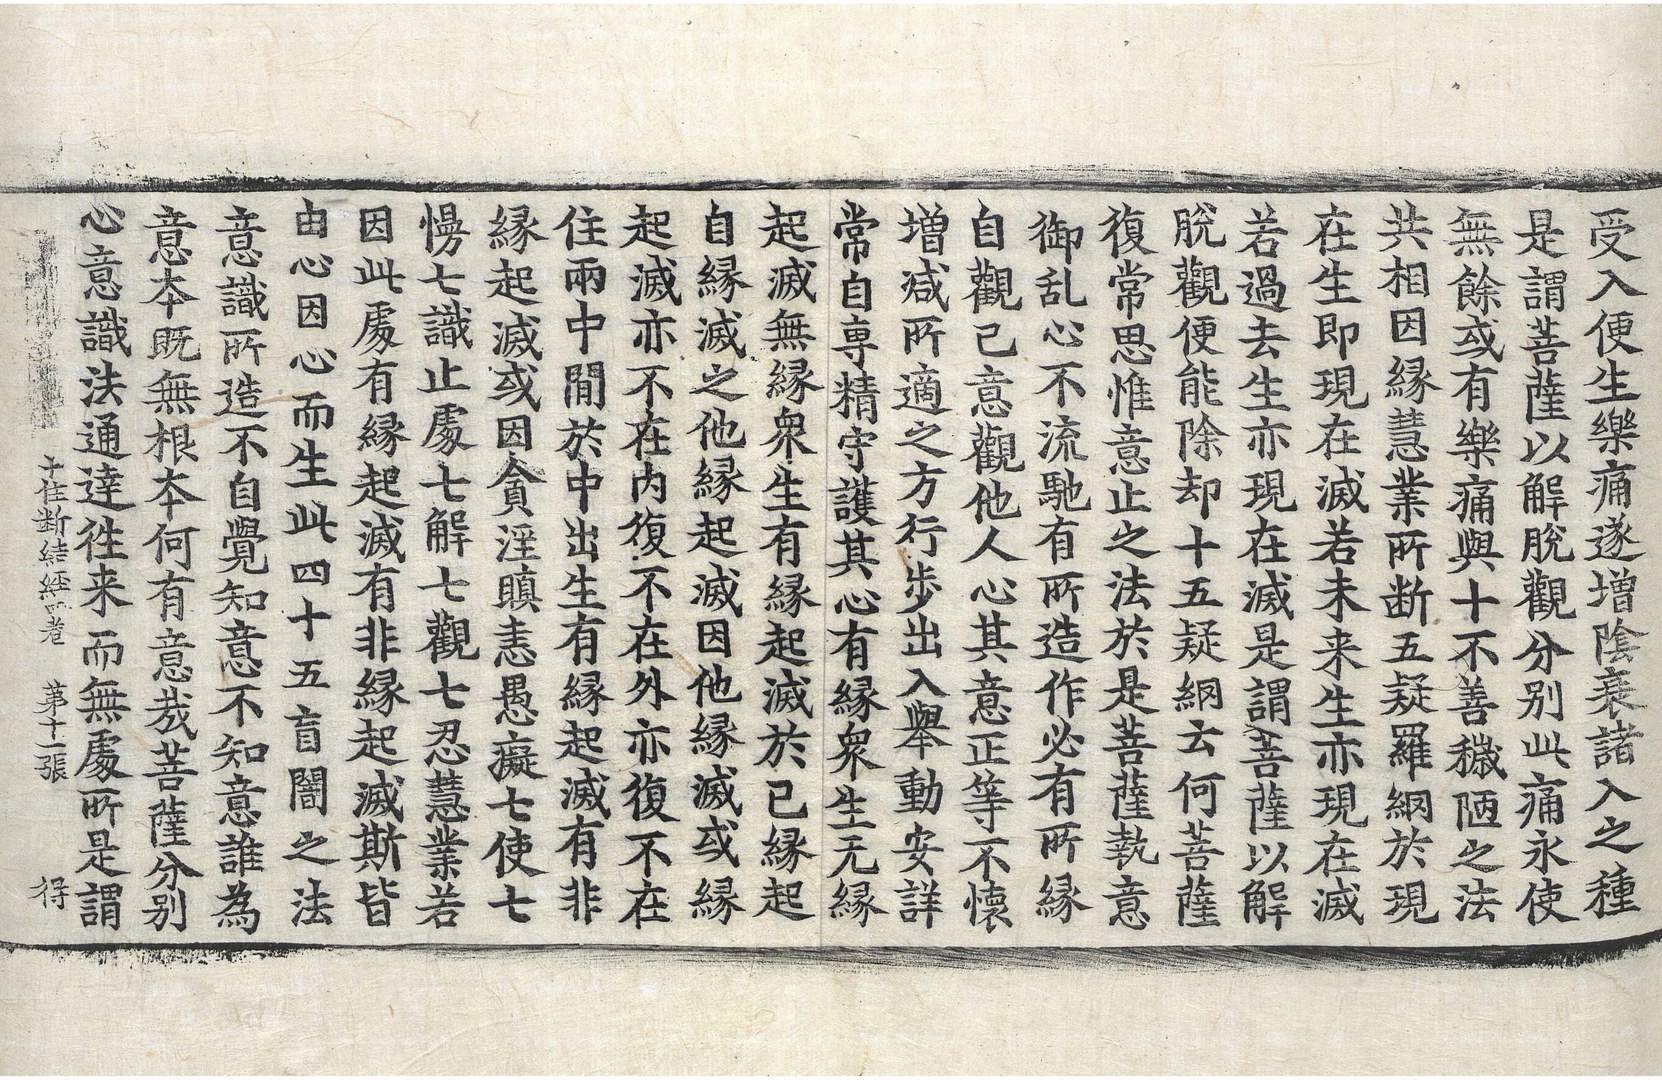 受入便生樂痛遂增陰衰諸入之種
是謂菩薩以解脫觀分別此痛永使
無餘或有樂痛與十不善穢陋之法
共相因緣慧業所斷五疑羅網於現
在生即現在滅若未来生亦現在滅
若過去生亦現在滅是謂菩薩以解
脫觀便能除却十五疑網云何菩薩
復常思惟意止之法於是菩薩執意
御乱心不流馳有所造作必有所緣
自觀己意觀他人心其意正等不懷
增減所適之方行步出入舉動安詳
常自專精守護其心有緣衆生无緣
起滅無緣衆生有緣起滅於已緣起
自緣滅之他緣起滅因他緣滅或緣
起滅亦不在內復不在外亦復不在
住兩中間於中出生有緣起滅有非
緣起滅或因貪淫瞋恚愚癡七使七
慢七識止處七解七觀七忍慧業若
因此處有緣起滅有非緣起滅斯皆
由心因心而生此四十五盲闇之法
意識所造不自覺知意不知意誰為
意本既無根本何有意哉菩薩分別
心意識法通達往来而無處所是謂
十住断結經 卷 第十一張 得